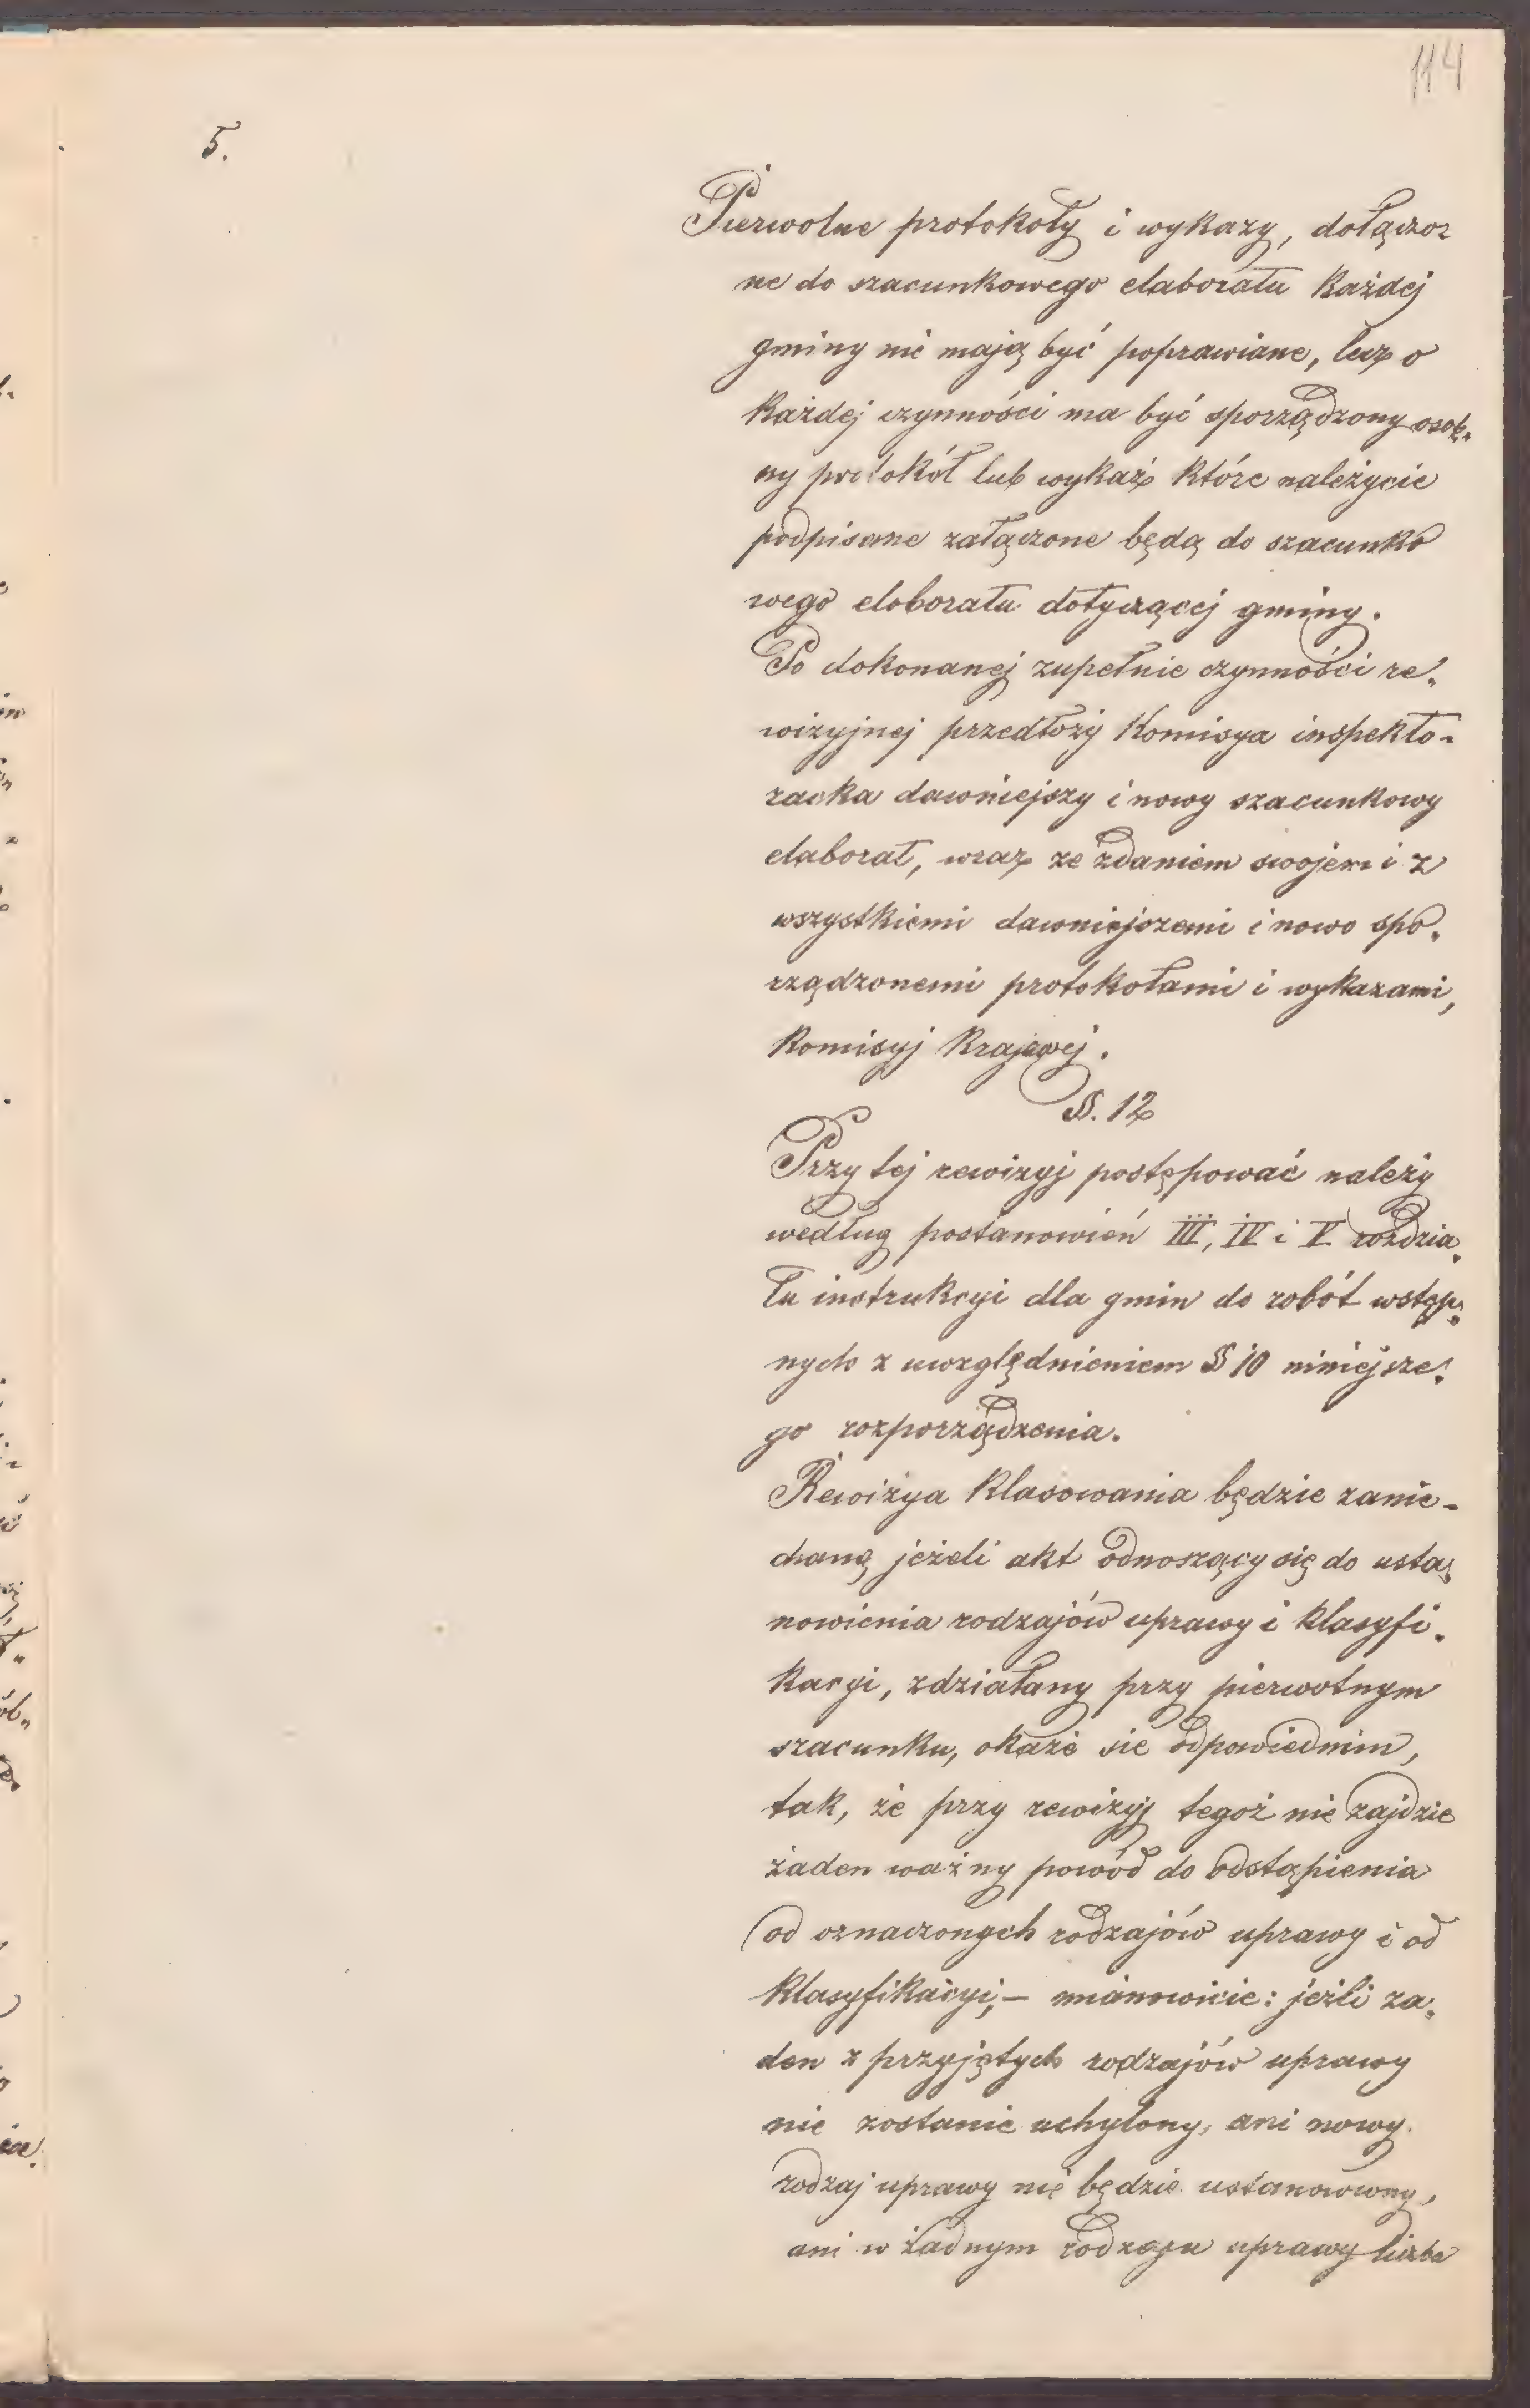 114
5.
Pierwotne protokoły i wykazy, dołączo-
ne do szacunkowego elaboratu każdej
gminy nie mają być poprawiane, lecz o
każdej czynności ma być sporządzony osob„
ny protokół lub wykaz które należycie
podpisane załączone będą do szacunko
wego eloboratu dotyczącej gminy.
Po dokonanej zupełnie czynności re„
wizyjnej przedłoży Komisya inspekto-
racka dawniejszy i nowy szacunkowy
elaborat, wraz ze zdaniem swojem i z
wszystkiemi dawniejszemi i nowo spo„
rządzonemi protokołami i wykazami,
Komisyj Krajowej.
§. 12
Przy tej rewizyj postępować należy
według postanowień III, IV i V rozdzia„
łu instrukcyi dla gmin do robót wstęp„
nych z uwzględnieniem § 10 niniejsze„
go rozporządzenia.
Rewizya klasowania będzie zanie-
chaną jeżeli akt odnoszący się do usta„
nowienia rodzajów uprawy i klasyfi„
kacyi, zdziałany przy pierwotnym
szacunku, okaże sie odpowiednim,
tak, że przy rewizyj tegoż nie zajdzie
żaden ważny powód do odstąpienia
od oznaczonych rodzajów uprawy i od
klasyfikacyi;— mianowicie: jeźli za„
den z przyjętych rodzajów uprawy
nie zostanie uchylony, ani nowy
rodzaj uprawy nie będzie ustanowiony,
ani w żadnym rodzaju uprawy liczba